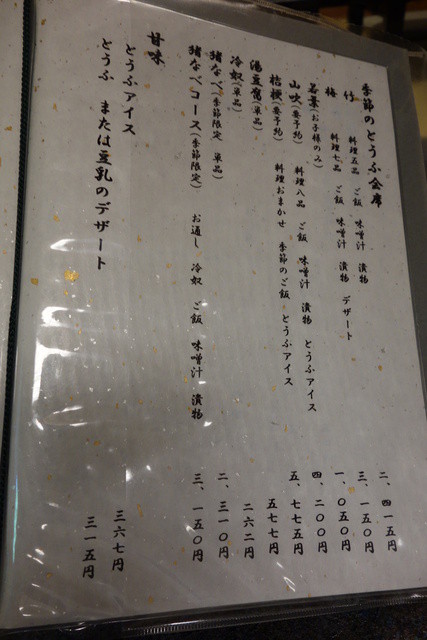 季節のとうふ会席
竹 料理五品 ご飯 味噌汁 漬物 二、四一五円
梅 料理七品 ご飯 味噌汁 漬物 デザート 三、一五〇円
若葉(お子様のみ) 一、〇五〇円
山吹(要予約) 料理八品 ご飯 味噌汁 漬物 とうふアイス 四、二〇〇円
桔梗(要予約) 料理おまかせ 季節のご飯 とうふアイス 五、七七五円
湯豆腐(単品) 五七七円
冷奴(単品) 二六二円
猪なべ(季節限定 単品) 二、三一〇円
猪なべコース(季節限定) お通し 冷奴 ご飯 味噌汁 漬物 三、一五〇円
甘味
とうふアイス 三六七円
とうふ または豆乳のデザート 三一五円